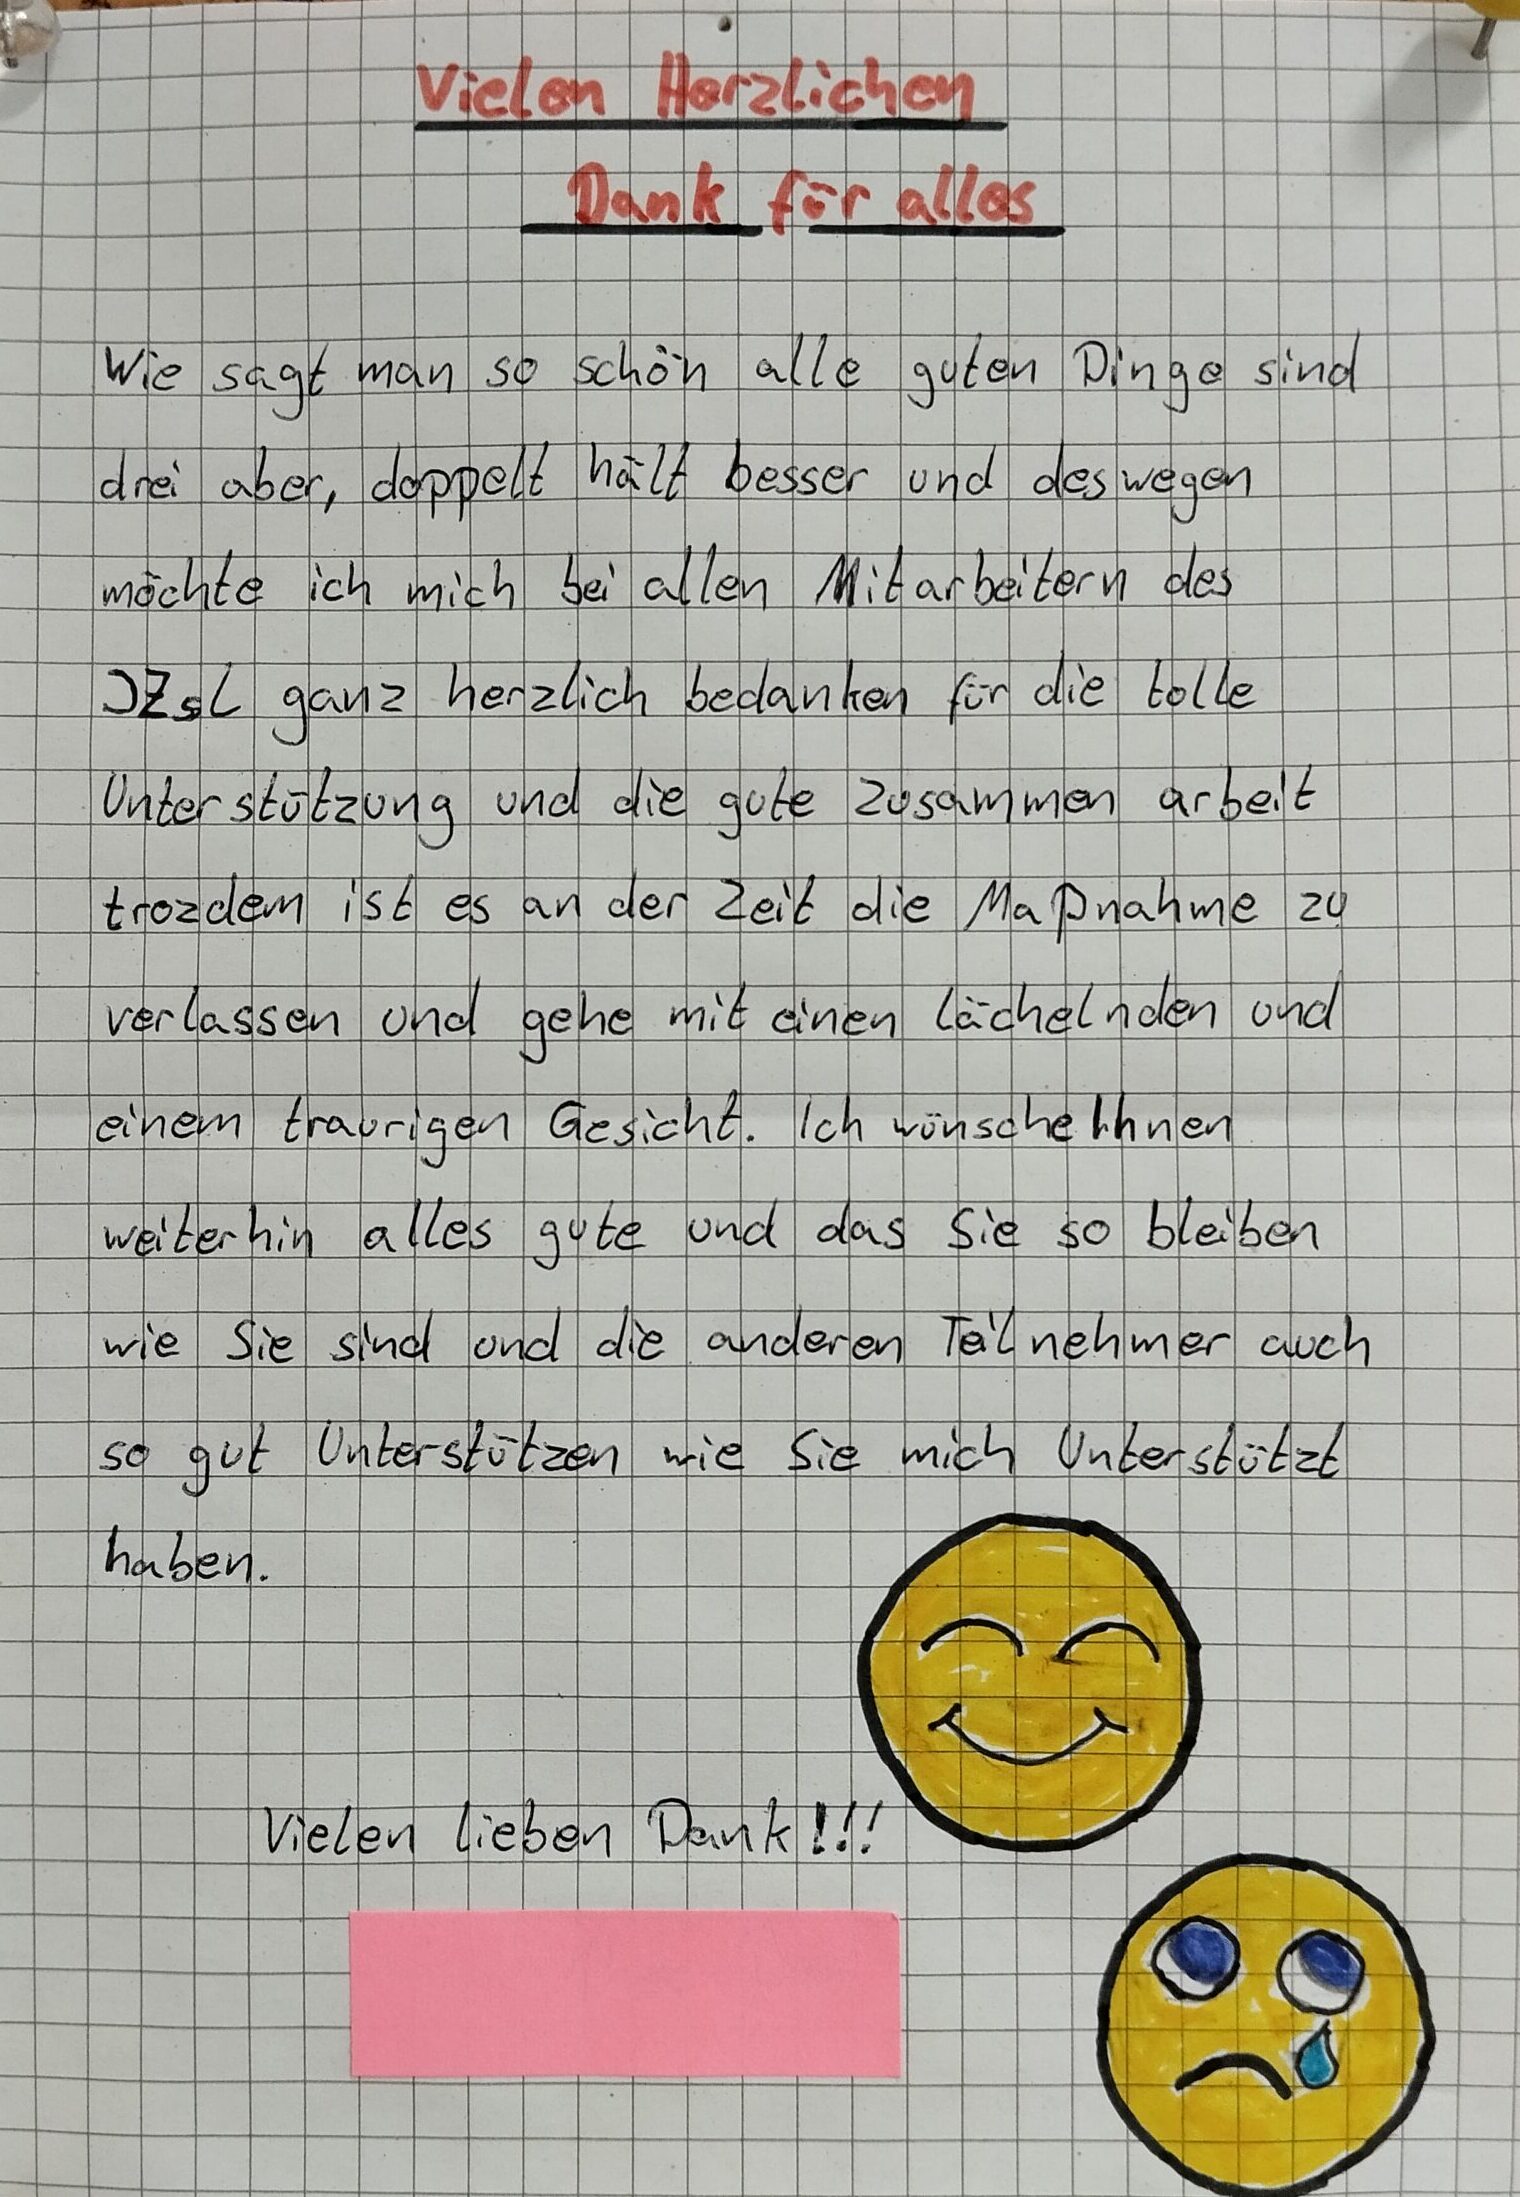 Vielen Herzlichen
Dank für alles
Wie sagt man so schön alle guten Dinge sind
drei aber, doppelt hält besser und deswegen
möchte ich mich bei allen Mitarbeitern des
IZsL ganz herzlich bedanken für die tolle
Unterstützung und die gute Zusammen arbeit
trozdem ist es an der Zeit die Maßnahme zu
verlassen und gehe mit einen lächelnden und
einem traurigen Gesicht. Ich wünsche Ihnen
weiterhin alles gute und das Sie so bleiben
wie Sie sind und die anderen Teilnehmer auch
so gut Unterstützen wie Sie mich Unterstützt
haben.
Vielen lieben Dank!!!